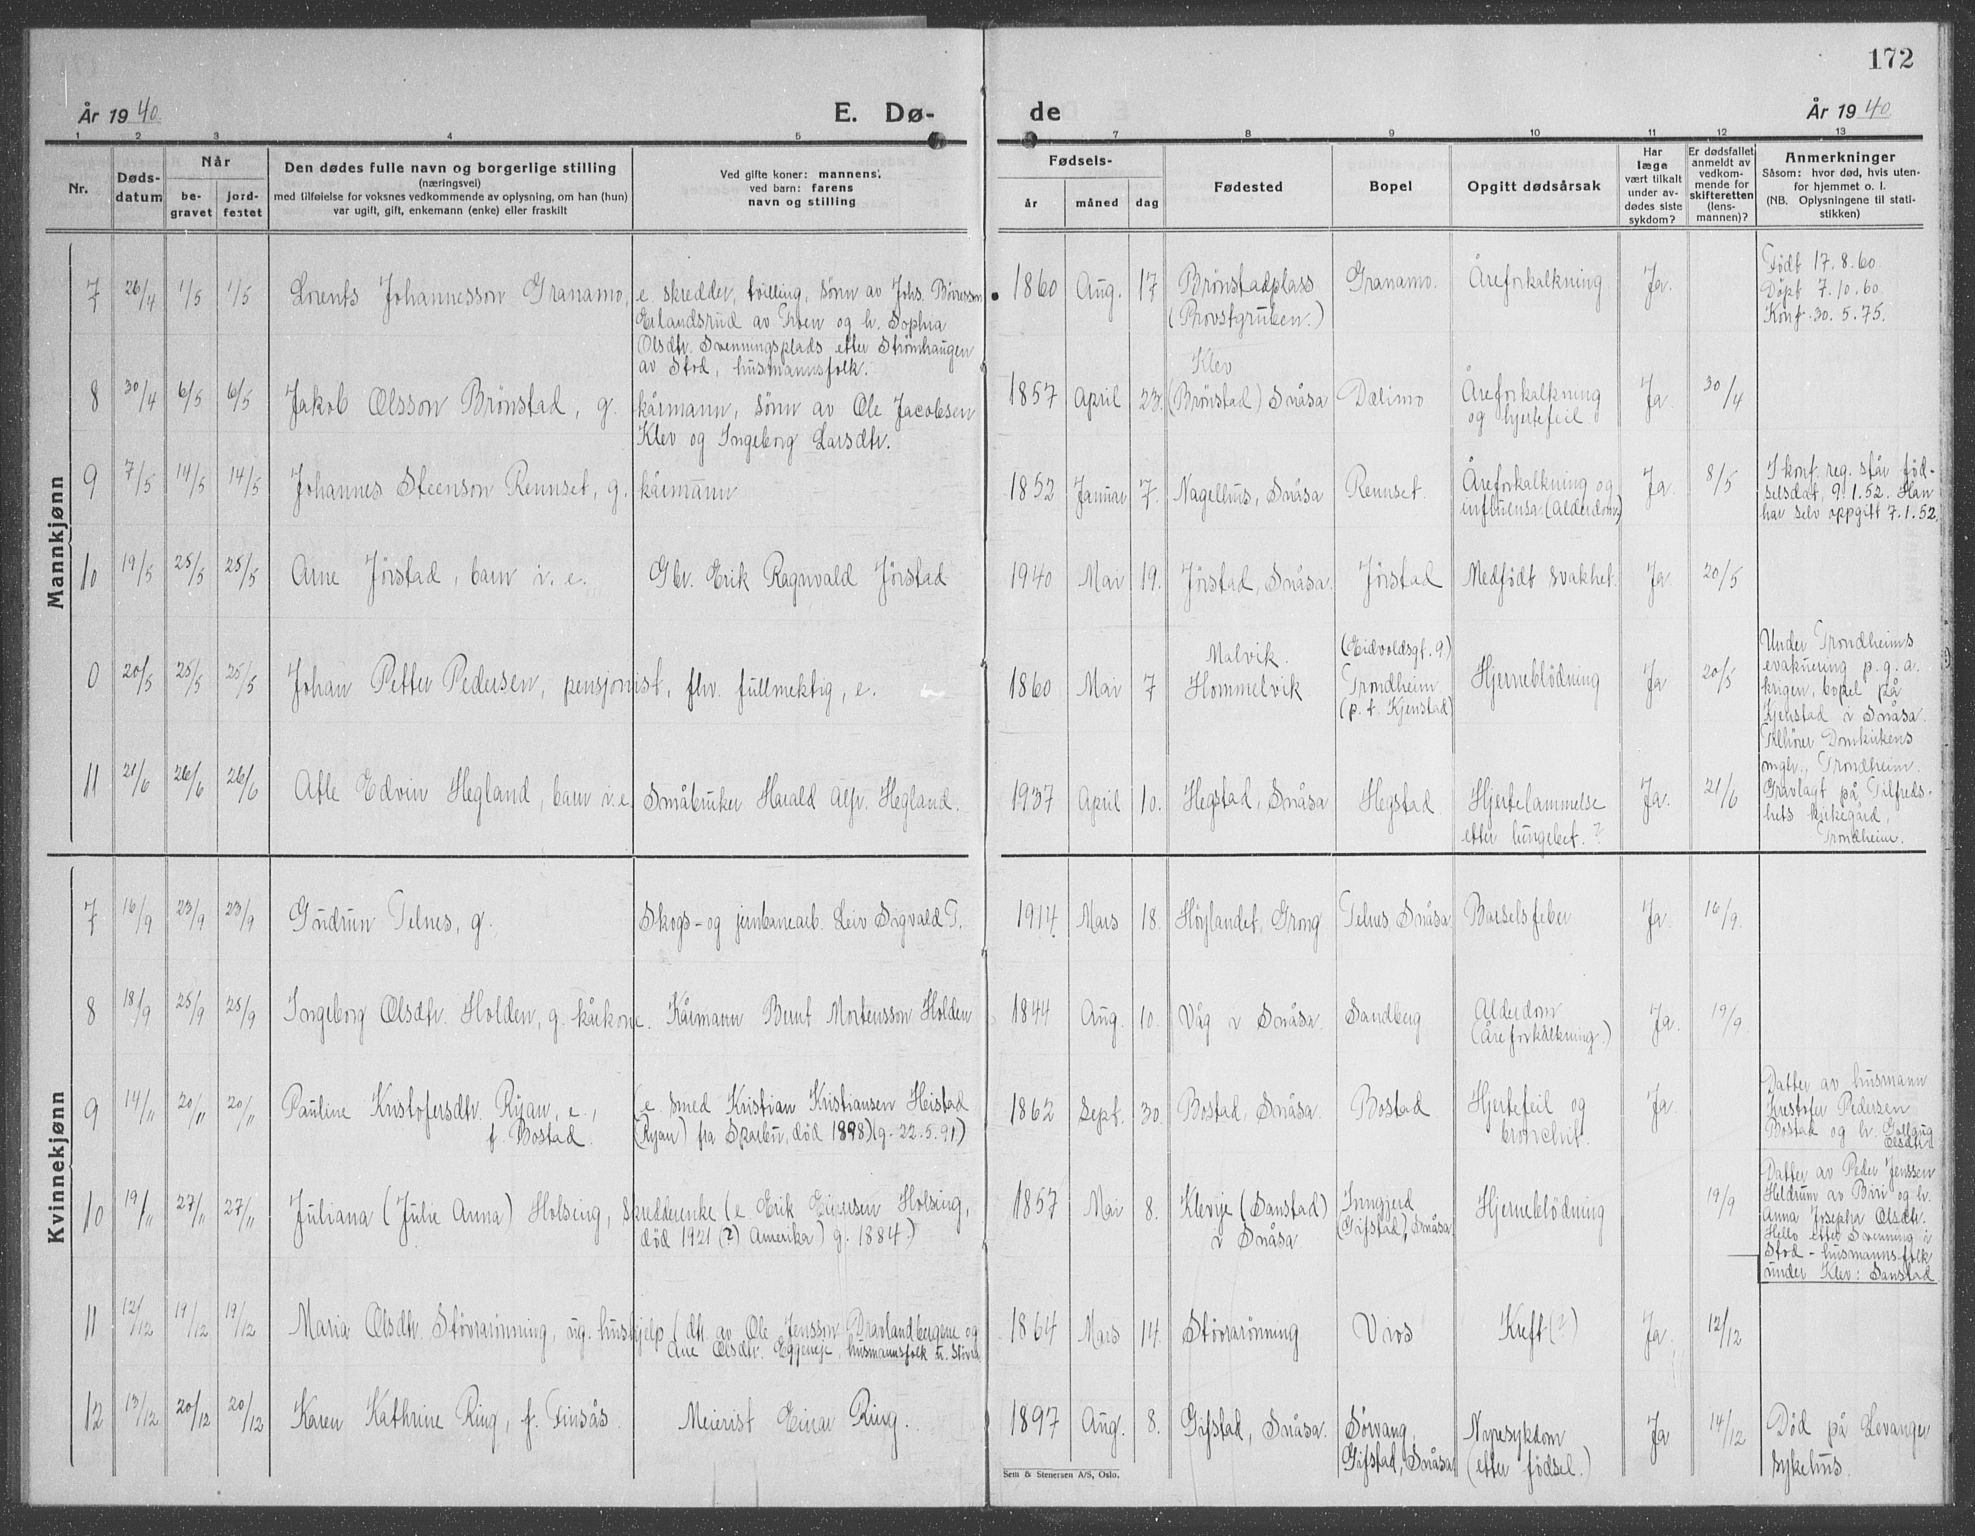 172
År 1940
E. Dø-
de
År 1940
1 2 3 4 5 7 8 9 10 11 12 13
Nr.
Døds-
datum
Når
be-
gravet
jord-
festet
Den dødes fulle navn og borgerlige stilling
(næringsvei)
med tilføielse for voksnes vedkommende av oplysning, om han (hun)
var ugift, gift, enkemann (enke) eller fraskilt
Ved gifte koner: mannens,
ved barn: farens
navn og stilling
Fødsels-
år måned dag
Fødested
Bopel
Opgitt dødsårsak
Har
læge
vært tilkalt
under av-
dødes siste
sykdom?
Er dødsfallet
anmeldt av
vedkom-
mende for
skifteretten
(lens-
mannen)?
Anmerkninger
Såsom: hvor død, hvis uten-
for hjemmet o. l.
(NB. Oplysningene til stati-
stikken)
Mannkjønn
7 26/4 1/5 1/5 Lorents Johannesson Granamo, e. skredder, tvilling, sønn av Johs. Børresson
Erlandsrud av Troen og h. Sophia
Olsdtr. Svenningsplads etter Strømhaugen
av Stod, husmannsfolk.
1860 Aug. 17 Brønstadplass
(Provstgruben.)
Granamo. Åreforkalkning Ja.
Født 17.8.60.
Døpt 7.10.60.
Konf. 30.5.75.
8 30/4 6/5 6/5 Jakob Olsson Brønstad, g. kårmann, sønn av Ole Jacobsen
Klev og Ingeborg Larsdtr.
1857 April 23. Klev
(Brønstad) Snåsa
Dalimo Åreforkalkning
og hjertefeil
Ja 30/4
9 7/5 14/5 14/5 Johannes Steenson Rennset, g. kårmann
1852 Januar 7. Nagelhus, Snåsa Rennset. Åreforkalkning og
influensa (alderdom)
Ja 8/5
I konf. reg. står fød-
selsdat. 9.1.52. Han
har selv oppgitt 7.1.52.
10 19/5 25/5 25/5 Arne Jørstad, barn i. e. Gbr. Erik Ragnvald Jørstad
1940 Mai 19. Jørstad, Snåsa. Jørstad Medfødt svakhet. Ja 20/5
0 20/5 25/5 25/5 Johan Petter Pedersen, pensjonist, fhv. fullmektig, e.
1860 Mai 7 Malvik.
Hommelvik
(Eidvoldsgt. 9)
Trondheim
(p. t. Kjenstad)
Hjerneblödning Ja 20/5
Under Trondheims
evakuering p.g.a.
krigen, bopel på
Kjenstad i Snåsa.
Tilhører Domkirkens
mgh., Trondheim.
Gravlagt på Tilfreds-
hets kirkegård,
Trondheim.
11 21/6 26/6 26/6 Atle Edvin Hegland, barn i. e. Småbruker Harald Alfr. Hegland.
1937 April 10. Hegstad, Snåsa Hegstad. Hjertelammelse
etter lungebet. ?
Ja. 21/6
Kvinnekjønn
7 16/9 23/9 23/9 Gudrun Telnes, g. Skogs- og jernbanearb. Leiv Sigvald T.
1914 Mars 18. Høylandet, Grong Telnes, Snåsa Barselsfeber Ja 16/9.
8 18/9 25/9 25/9 Ingeborg Olsdtr. Holden, g. kårkone. Kårmann Bernt Mortensson Holden
1844 Aug. 10. Våg i Snåsa. Sandberg Alderdom
(Åreforkalkning.)
Ja. 19/9.
9 14/11 20/11 20/11 Pauline Kristofersdtr. Ryan, e.,
f. Bostad.
(e. smed Kristian Kristiansen Heistad
(Ryan) fra Sparbu, død 1898)(g. 22.5.91)
1862 Sept. 30. Bostad, Snåsa. Bostad Hjertefeil og
bronchit.
Ja.
Datter av husmann
Kristofer Pedersen
Bostad og h. Gollaug
Olsdtr.
10 19/11 27/11 27/11 Juliana (Julie Anna) Holsing, skredderenke (e. Erik Holsing,
død 1921 (?) Amerika) g. 1884.)
1857 Mai 8. Klevje (Sanstad)
i Snåsa
Inngjerd
(Gifstad), Snåsa
Hjerneblödning 19/9
Datter av Peder Jenssen
Heldrum av Biri og h.
Anna Josepha Olsdtr.
Hello etter Svenning i
Stod - husmannsfolk
under Klev: Sanstad
11 12/12 19/12 19/12 Maria Olsdtr. Støvrarønning, ug. hushjelp (dtr. av Ole Jensson Dravlandbergene og
Ane Olsdtr. Eggeneje, husmannsfolk u. Støvra
1864 Mars 14. Støvrarønning Vios Kreft (?) Ja. 12/12
12 13/12 20/12 20/12 Karen Kathrine Ring, f. Finsås. Meierist Einar Ring.
1897 Aug. 8. Gifstad, Snåsa. Sørvang,
Gifstad, Snåsa
Nyresykdom
(etter fødsel.)
Ja 14/12
Død på Levanger
sykehus.
Sem & Stenersen A/S, Oslo.